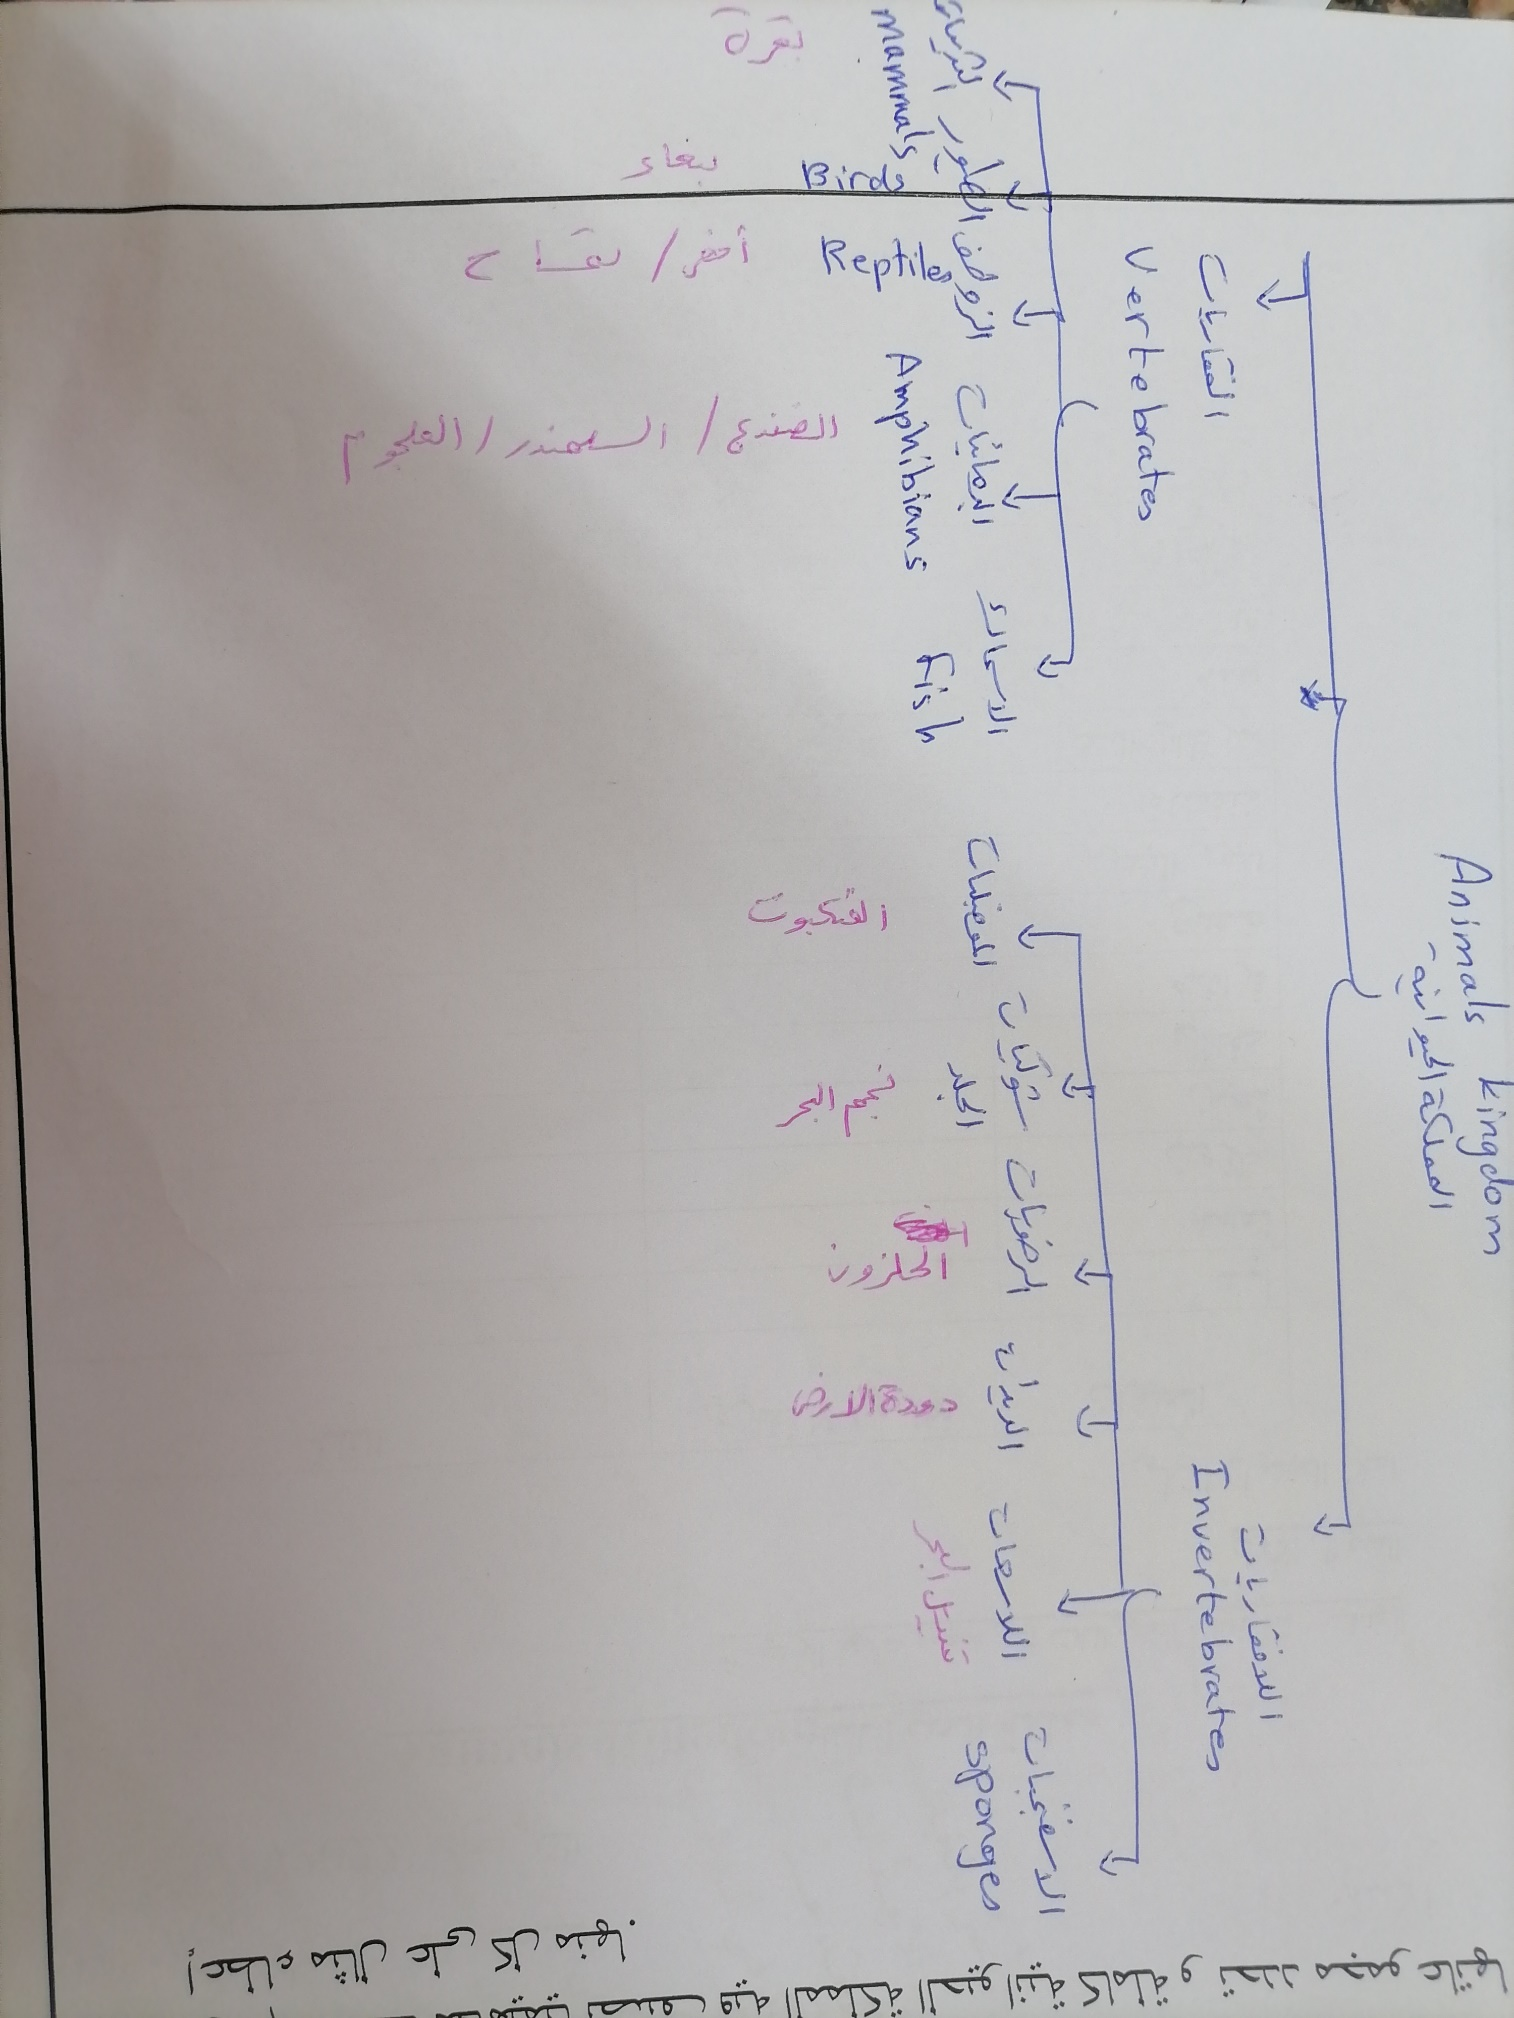 Animals kingdom
المملكة الحيوانية
الفقاريات
Vertebrates
اللافقاريات
Invertebrates
الثدييات
mammals
بقرة
الطيور
Birds
ببغاء
الزواحف
Reptiles
أفعى / تمساح
البرمائيات
Amphibians
الضفدع / السلمندر / العلجوم
الاسماك
Fish
المفصليات
العنكبوت
شوكيات
الجلد
نجم البحر
الرخويات
الحلزون
الديدان
دودة الارض
اللاسعات
قنديل البحر
الاسفنجيات
sponges
تصنف فيه المملكة الحيوانية كاملة و تحدد مجموعاتها
إعطاء مثال على كل منها.